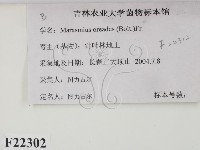 B
吉林农业大学菌物标本馆
学名: Marasmius oreades (Bolt.)Fr
寄主(基物): 针叶林地上
采集地及日期: 长春 2004.7.8
采集人: 图力古尔
定名人: 图力古尔
标本号:
F22302